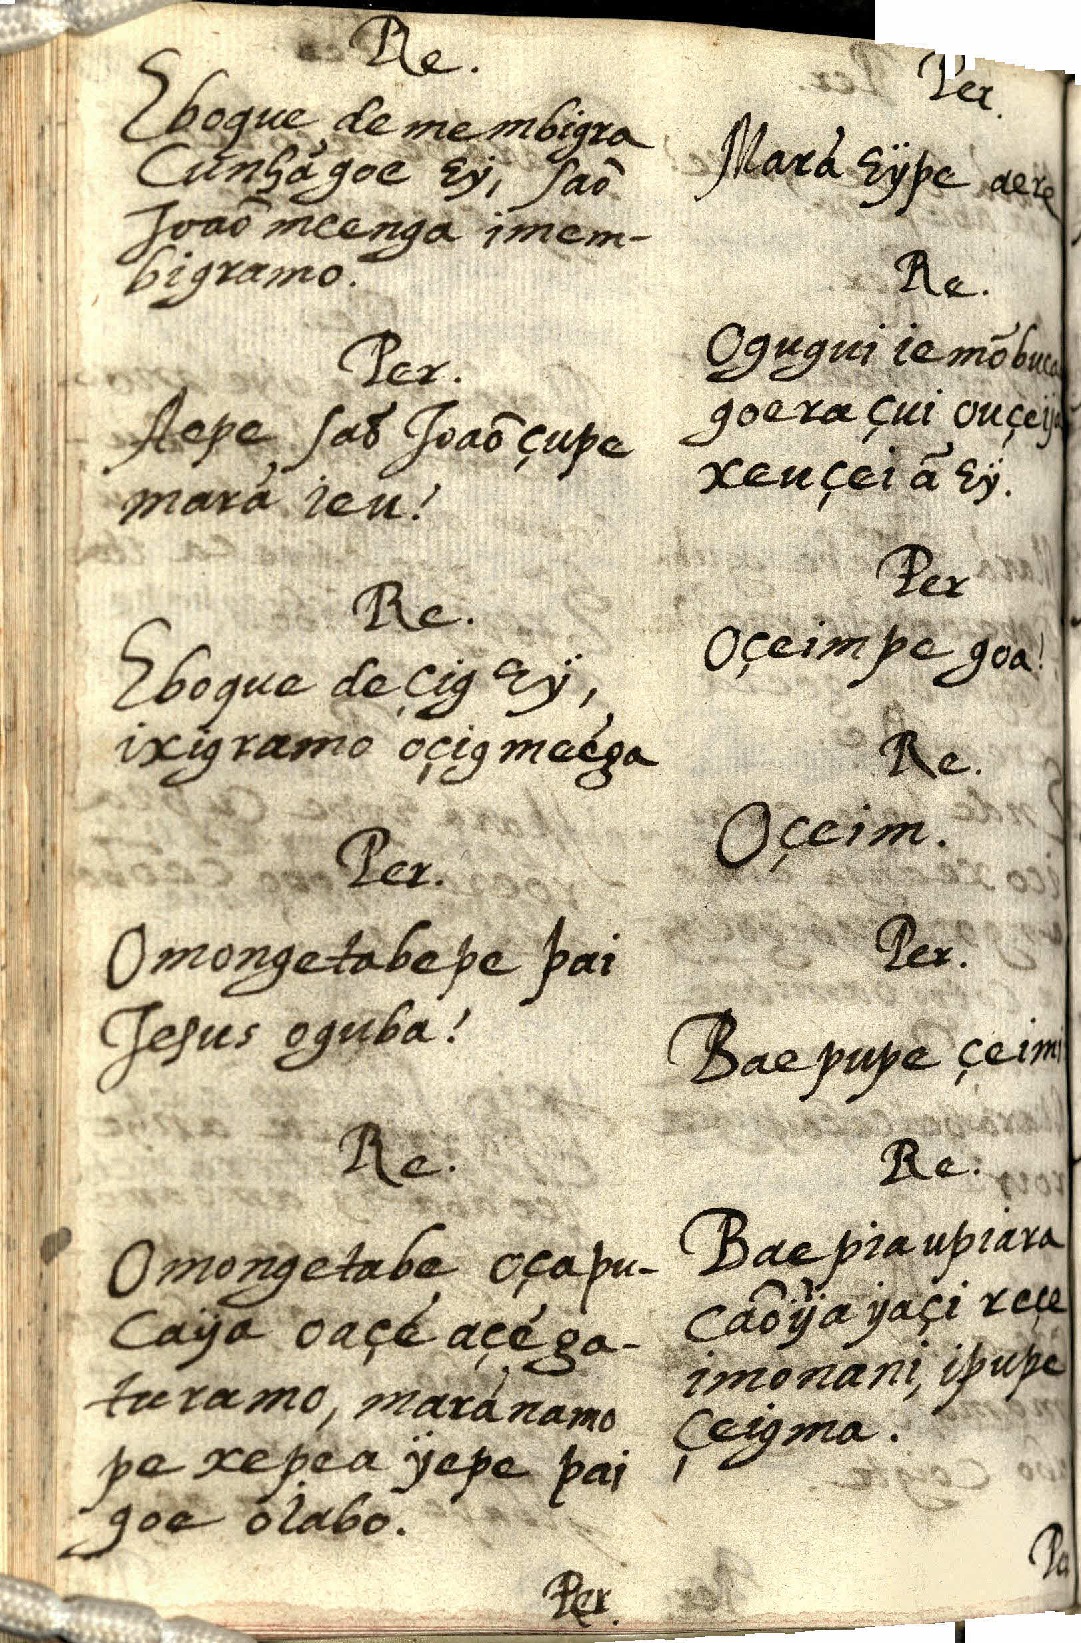 Re.
Eboque de membigra
Cunhá goe Eÿ, Saõ
Joaõ meenga imem-
bigramo.
Per.
Aepe Saõ Joaõ çupe
mará ieu!
Re.
Eboque de çig Eÿ,
ixigramo oçig meéga
Per.
Omongetabepe pai
Jesus oguba!
Re.
Omongetabe oçapu-
Caÿa oaçé açé ga-
turamo, maránamo
pe xepea ÿepe pai
goe oiabo.
Per.
Per.
Mará Eÿpe
Re.
Ogugui iemõ
goera çui
xeuçei ã Eÿ.
Per
Oçeimpe goa!
Re.
Oçeim.
Per.
Bae pupe
Re.
Bae pia upiara
Caõÿa yaçi reçe
imonani, ipupe
çeigma.